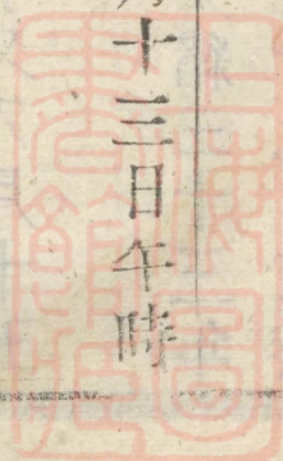 十三日午時
上海圖
書館藏